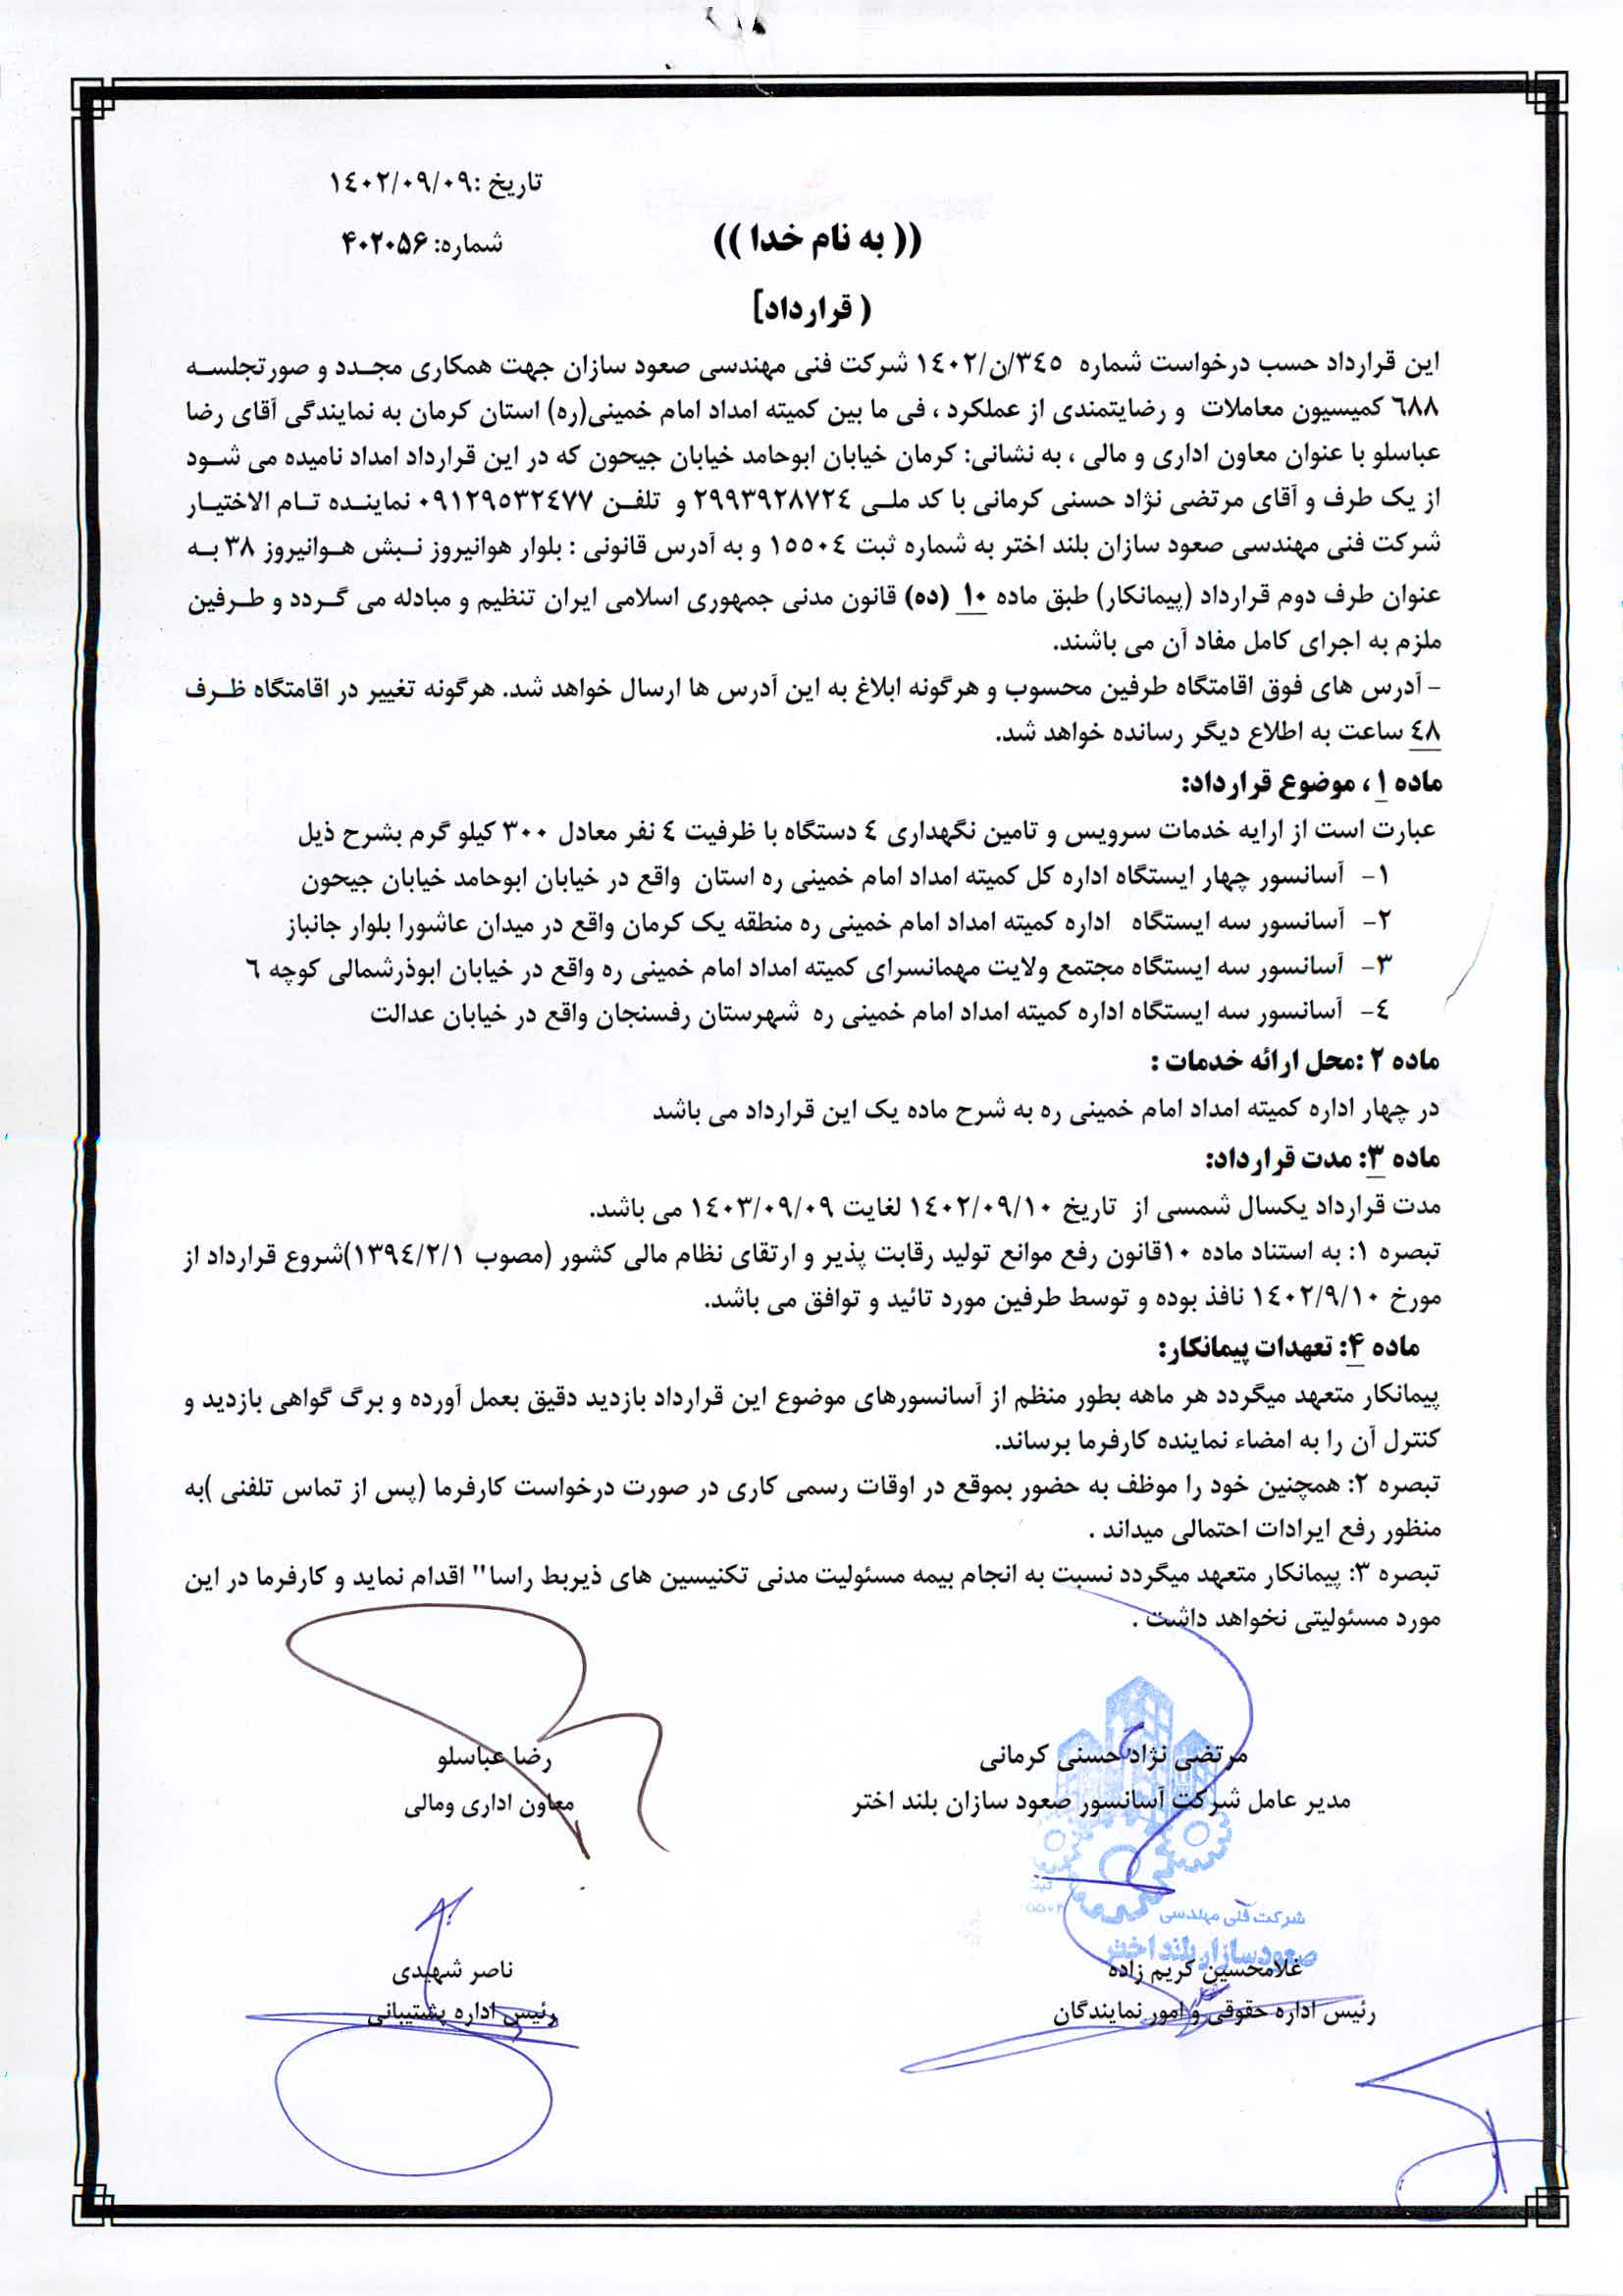 تاریخ :۱٤۰۲/۰۹/۰۹
شماره: ۴۰۲۰۵۶
(( به نام خدا ))
( قرارداد]
این قرارداد حسب درخواست شماره ۳٤٥/ن/۱٤۰۲ شرکت فنی مهندسی صعود سازان جهت همکاری مجـدد و صورتجلسـه
٦۸۸ کمیسیون معاملات و رضایتمندی از عملکرد ، فی ما بین کمیته امداد امام خمینی(ره) استان کرمان به نمایندگی آقای رضا
عباسلو با عنوان معاون اداری و مالی ، به نشانی: کرمان خیابان ابوحامد خیابان جیحون که در این قرارداد امداد نامیده می شـود
از یک طرف و آقای مرتضی نژاد حسنی کرمانی با کد ملـی ۲۹۹۳۹۲۸۷۲٤ و تلفـن ۰۹۱۲۹٥۳۲٤۷۷ نماینـده تـام الاختیـار
شرکت فنی مهندسی صعود سازان بلند اختر به شماره ثبت ۱٥٥۰٤ و به آدرس قانونی : بلوار هوانیروز نـبش هـوانیروز ۳۸ بـه
عنوان طرف دوم قرارداد (پیمانکار) طبق ماده ۱۰ (ده) قانون مدنی جمهوری اسلامی ایران تنظیم و مبادله می گـردد و طـرفین
ملزم به اجرای کامل مفاد آن می باشند.
- آدرس های فوق اقامتگاه طرفین محسوب و هرگونه ابلاغ به این آدرس ها ارسال خواهد شد. هرگونه تغییر در اقامتگاه ظـرف
٤۸ ساعت به اطلاع دیگر رسانده خواهد شد.
ماده ۱ ، موضوع قرارداد:
عبارت است از ارایه خدمات سرویس و تامین نگهداری ٤ دستگاه با ظرفیت ٤ نفر معادل ۳۰۰ کیلو گرم بشرح ذیل
۱- آسانسور چهار ایستگاه اداره کل کمیته امداد امام خمینی ره استان واقع در خیابان ابوحامد خیابان جیحون
۲- آسانسور سه ایستگاه اداره کمیته امداد امام خمینی ره منطقه یک کرمان واقع در میدان عاشورا بلوار جانباز
۳- آسانسور سه ایستگاه مجتمع ولایت مهمانسرای کمیته امداد امام خمینی ره واقع در خیابان ابوذرشمالی کوچه ٦
٤- آسانسور سه ایستگاه اداره کمیته امداد امام خمینی ره شهرستان رفسنجان واقع در خیابان عدالت
ماده ۲ :محل ارائه خدمات :
در چهار اداره کمیته امداد امام خمینی ره به شرح ماده یک این قرارداد می باشد
ماده ۳: مدت قرارداد:
مدت قرارداد یکسال شمسی از تاریخ ۱٤۰۲/۰۹/۱۰ لغایت ۱٤۰۳/۰۹/۰۹ می باشد.
تبصره ۱: به استناد ماده ۱۰قانون رفع موانع تولید رقابت پذیر و ارتقای نظام مالی کشور (مصوب ۱۳۹٤/۲/۱)شروع قرارداد از
مورخ ۱٤۰۲/۹/۱۰ نافذ بوده و توسط طرفین مورد تائید و توافق می باشد.
ماده ۴: تعهدات پیمانکار:
پیمانکار متعهد میگردد هر ماهه بطور منظم از آسانسورهای موضوع این قرارداد بازدید دقیق بعمل آورده و برگ گواهی بازدید و
کنترل آن را به امضاء نماینده کارفرما برساند.
تبصره ۲: همچنین خود را موظف به حضور بموقع در اوقات رسمی کاری در صورت درخواست کارفرما (پس از تماس تلفنی )به
منظور رفع ایرادات احتمالی میداند .
تبصره ۳: پیمانکار متعهد میگردد نسبت به انجام بیمه مسئولیت مدنی تکنیسین های ذیربط راسا" اقدام نماید و کارفرما در این
مورد مسئولیتی نخواهد داشت .
مرتضی نژاد حسنی کرمانی
مدیر عامل شرکت آسانسور صعود سازان بلند اختر
رضا عباسلو
معاون اداری ومالی
شرکت فنی مهندسی
صعودسازان بلند اختر
غلامحسین کریم زاده
رئیس اداره حقوقی و امور نمایندگان
ناصر شهیدی
رئیس اداره پشتیبانی